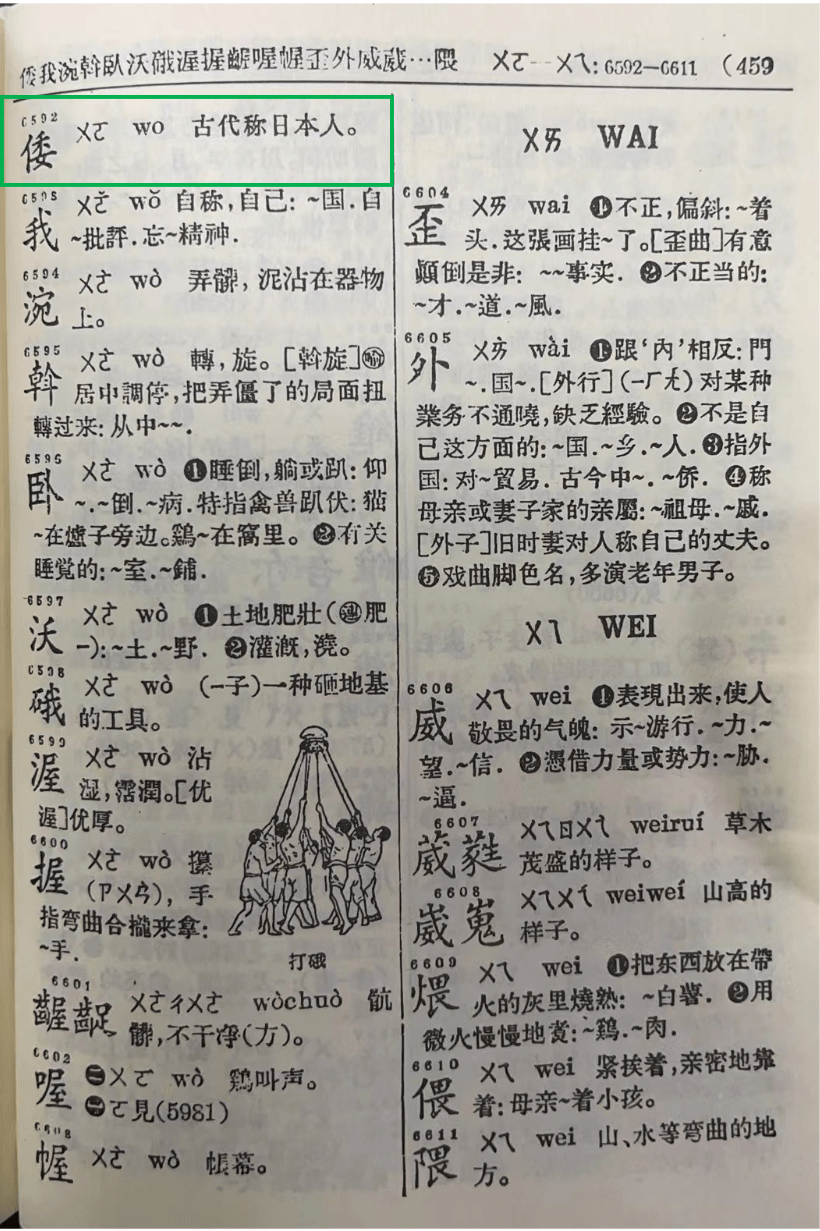 倭我涴斡臥沃硪渥握齷喔幄歪外威葳…隈 ㄨㄛ—ㄨㄟ:6592—6611 (459
6592
倭 ㄨㄛ wo 古代称日本人。
我 ㄨㄛˇ wǒ 自称,自己: ~国.自
~批評.忘~精神.
6594
涴 ㄨㄛˋ wò 弄髒, 泥沾在器物
上。
6595
斡 ㄨㄛˋ wò 轉, 旋。[斡旋]㊠
居中調停,把弄僵了的局面扭
轉过来: 从中~~.
卧 ㄨㄛˋ wò ❶睡倒,躺或趴: 仰
~.~倒.~病.特指禽兽趴伏: 猫
~在爐子旁边。鷄~在窩里。❷有关
睡覚的:~室.~鋪.
6597
沃 ㄨㄛˋ wò ❶土地肥壯(㊣肥
—):~土.~野. ❷灌漑,澆。
6598
硪 ㄨㄛˋ wò (—子)一种砸地基
的工具。
渥 ㄨㄛˋ wò 沾
湿,霑潤。[优
渥]优厚。
6600
握 ㄨㄛˋ wò 攥
(ㄗㄨㄢˋ), 手
指弯曲合攏来拿:
~手.
打硪
6601
齷齪 ㄨㄛˋㄔㄨㄛˋ wòchuò 骯
髒,不干净(方)。
6602
喔 ㊁ㄨㄛ wò 鷄叫声。
㊀ㄛ見(5981)
幄 ㄨㄛˋ wò 帳幕。
ㄨㄞ WAI
6604
歪 ㄨㄞ wai ❶不正,偏斜:~着
头.这張画挂~了。[歪曲]有意
顚倒是非: ~~事实. ❷不正当的:
~才.~道.~風.
6605
外 ㄨㄞˋ wài ❶跟‘內’相反: 門
~.国~.[外行](—ㄏㄤˊ) 对某种
業务不通嘵,缺乏經驗。❷不是自
己这方面的:~国.~乡.~人.❸指外
国: 对~貿易. 古今中~.~侨. ❹称
母亲或妻子家的亲屬:~祖母.~戚.
[外子]旧时妻对人称自己的丈夫。
❺戏曲脚色名,多演老年男子。
ㄨㄟ WEI
6606
威 ㄨㄟ wei ❶表現出来,使人
敬畏的气魄: 示~游行.~力.~
望.~信. ❷憑借力量或势力:~胁.
~逼.
6607
葳蕤 ㄨㄟㄖㄨㄟˊ weiruí 草木
茂盛的样子。
6608
崴嵬 ㄨㄟㄨㄟˊ weiweí 山高的
样子。
6609
煨 ㄨㄟ wei ❶把东西放在帶
火的灰里燒熟: ~白薯. ❷用
微火慢慢地煑:~鷄.~肉.
6610
偎 ㄨㄟ wei 紧挨着,亲密地靠
着: 母亲~着小孩。
6611
隈 ㄨㄟ wei 山、水等弯曲的地
方。